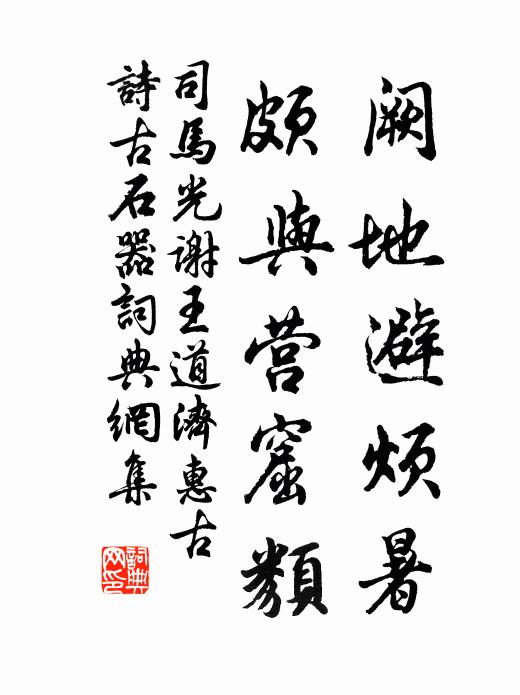 阙地避烦暑
颇與营窟類
司馬光謝王道濟惠古
詩古石器詞典網集
詞典网印